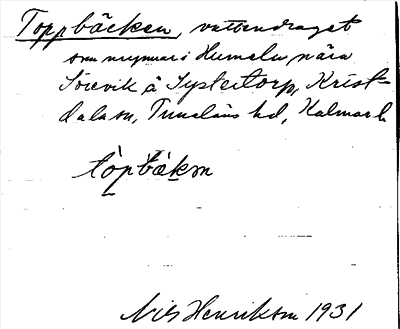 Toppbäcken, vattendraget
som mynnar i Humeln nära
Sörvik å Systertorp, Krist-
dala sn, Tunaläns hd, Kalmar l.
tòpbækən
Nils Henrikson 1931